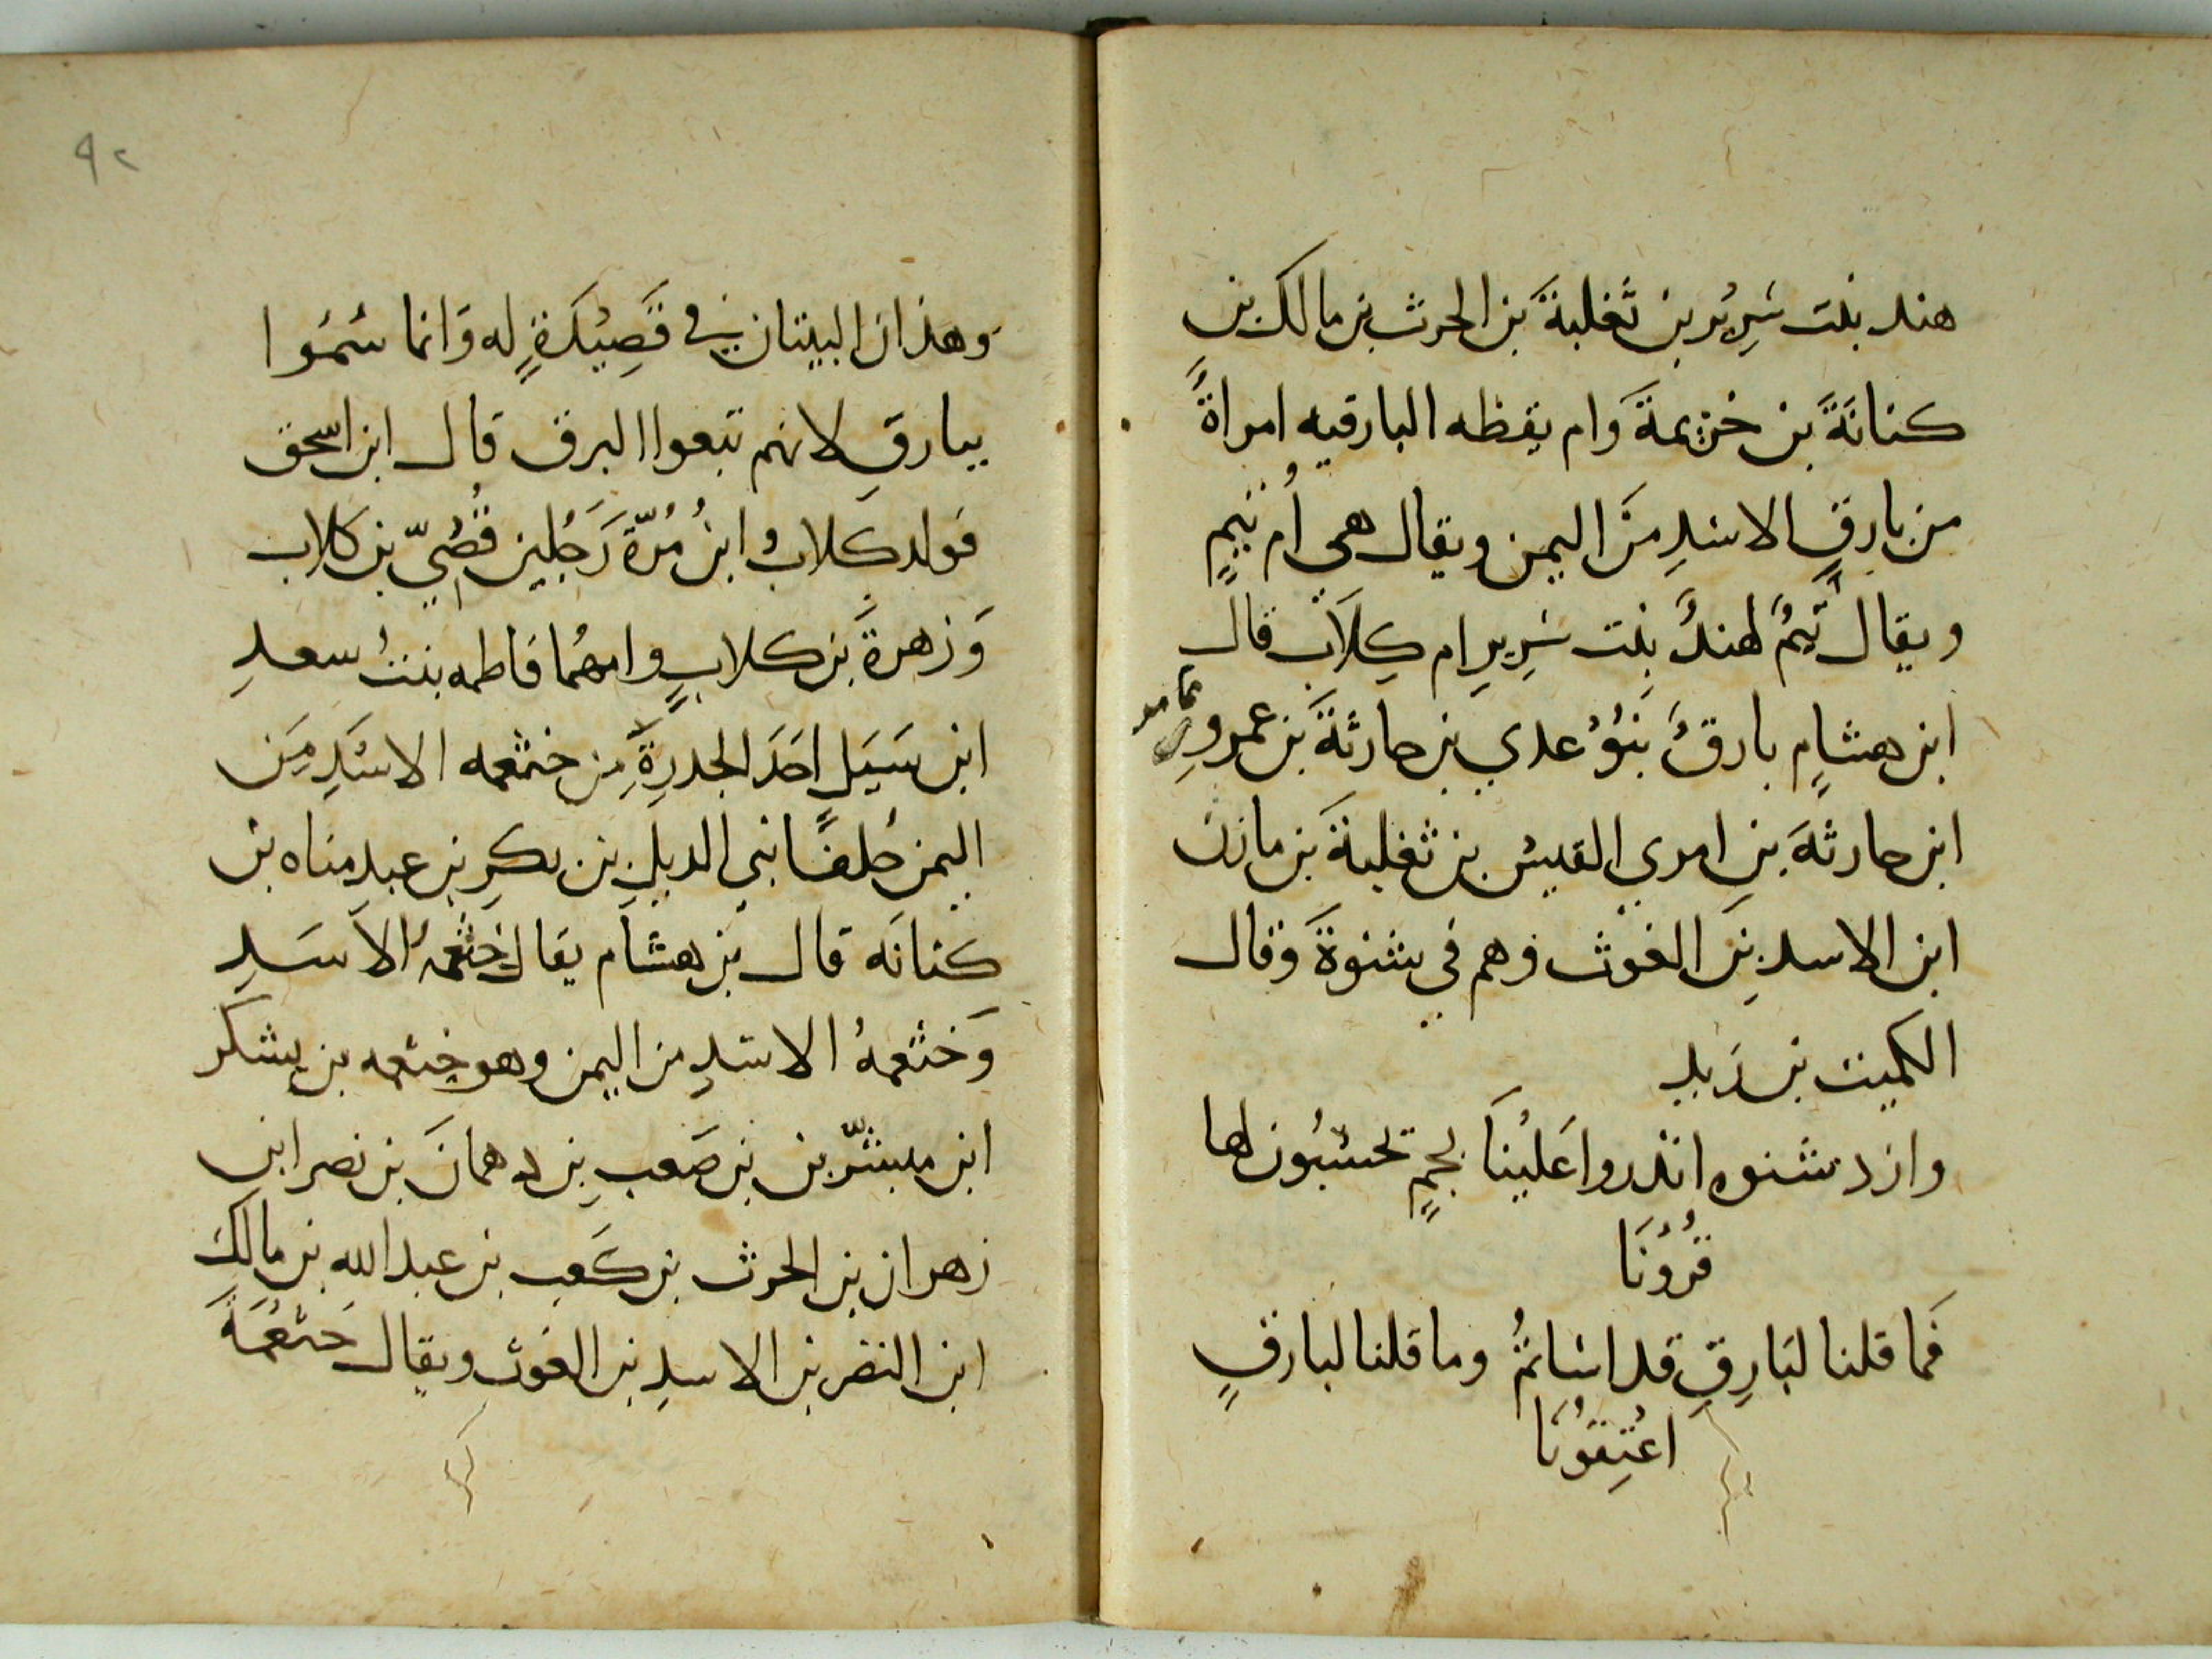 هند بنت سَرِيْر بن ثعْلبةَ بن الحرث بن مالك بن
كنانَةَ بن خزيمةَ وَام يقظه البارقيه امراةٌ
من بارقٍ الاسْدِ مِنَ اليمن ويقال هى اُم تيمٍ
ويقال تَيمٌ لهندُ بنت سَرِيرِ ام كِلَاب قال
ابن هشامٍ بارقٌ بَنُوْ عدي بن حارثةَ بن عمرِو
عامر
ابن حارثهَ بنِ امرى القيس بن ثعْلبةَ بن مازن
ابن الاسد بنِ الغوث وهم في شنوةَ وَقال
الكميت بن زَيد
وازد شنوه اندروا عَليْنَا بجمٍ تحسْبُون لها
قرُوْنَا
فَما قلنا لبَارِقِ قد اسَاتمُ وما قلنا لبارقٍ
اعْتِقوُنَا
٩٢
وَهذان البيتان فى قَصِيْدَةٍ له وَانما سُمُوا
ببارقٍ لانهم تبعوا البرق قال ابن اسحق
فولد كلابُ ابنُ مُرّةَ رَجُلين قُصَيّ بن كلاب
وَزهرةَ بن كلابٍ وامهُما فاطمه بنتُ سعدِ
ابن سَيَلٍ احَدَ الجدرةِ مِن خثعمه الاسْدِ مِنَ
اليمن حُلفًا بنى الديلِ بن بكرِ بن عبدِ مناه بن
كنانَه قال بن هشام يقال خثعمهُ الاسَدِ
وَخثعمهُ الاسْدِ من اليمن وهو خثعمه بن يشكر
ابن مبشّر بن بن صَعبِ بن دهمانَ بن نصر ابن
زهران بن الحرث بن كعب بن عبد الله بن مالك
ابن النضر بن الاسدِ بن الغوث ويقال خثعمَةَ